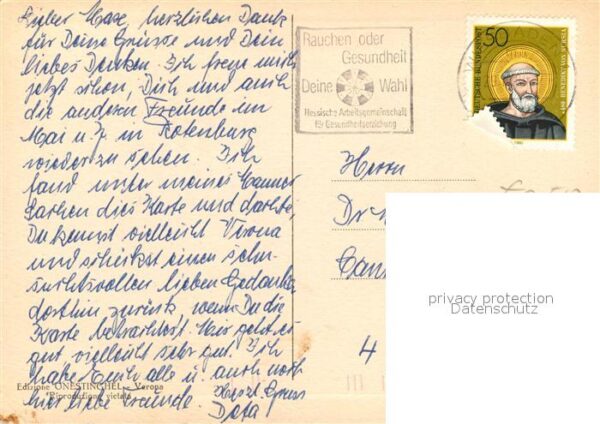 Lieber Maxe, herzlichen Dank
für Deine Grüsse und Dein
liebes Denken. Ich freue mich
jetzt schon, Dich und auch
die anderen Freunde im
Mai u. J. in Rotenburg
wieder zu sehen. Ich
fand unter meines Männer
Sachen dies Karte und dachte,
Du kennst vielleicht Verona
und schickst einen sehn-
suchtsvollen lieben Gedanken
dorthin zurück, wenn Du die
Karte betrachtest. Mir geht es
gut, vielleicht sehr gut. Ich
habe Euch alle u. auch noch
hier liebe Freunde. Herzl. Gruss
Edizione ONESTINGHEL - Verona
Riproduzione vietata
Rauchen oder
Gesundheit
Deine Wahl
Hessische Arbeitsgemeinschaft
für Gesundheitserziehung
50
DEUTSCHE BUNDESPOST
Herrn
Dr.
4
privacy protection
Datenschutz